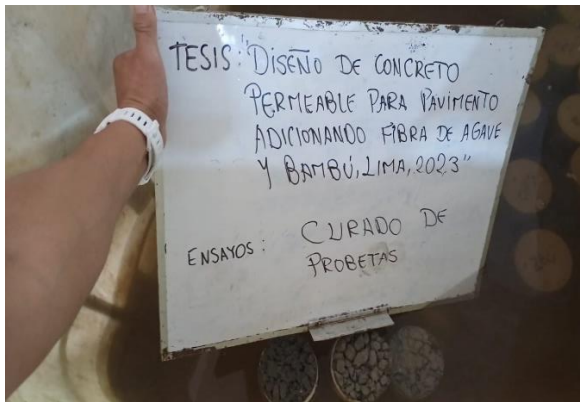 TESIS: "DISEÑO DE CONCRETO
PERMEABLE PARA PAVIMENTO
ADICIONANDO FIBRA DE AGAVE
Y BAMBÚ, LIMA, 2023"
ENSAYOS: CURADO DE
PROBETAS